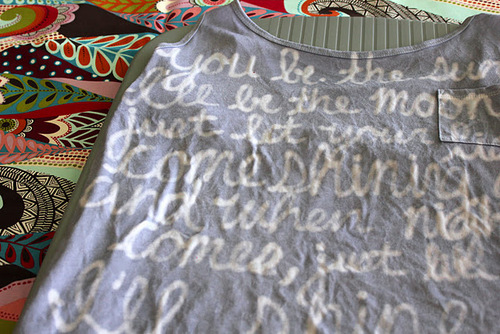 you be the sun
I'll be the moon
just let your
come shining
and when nig
comes, just le
I'll